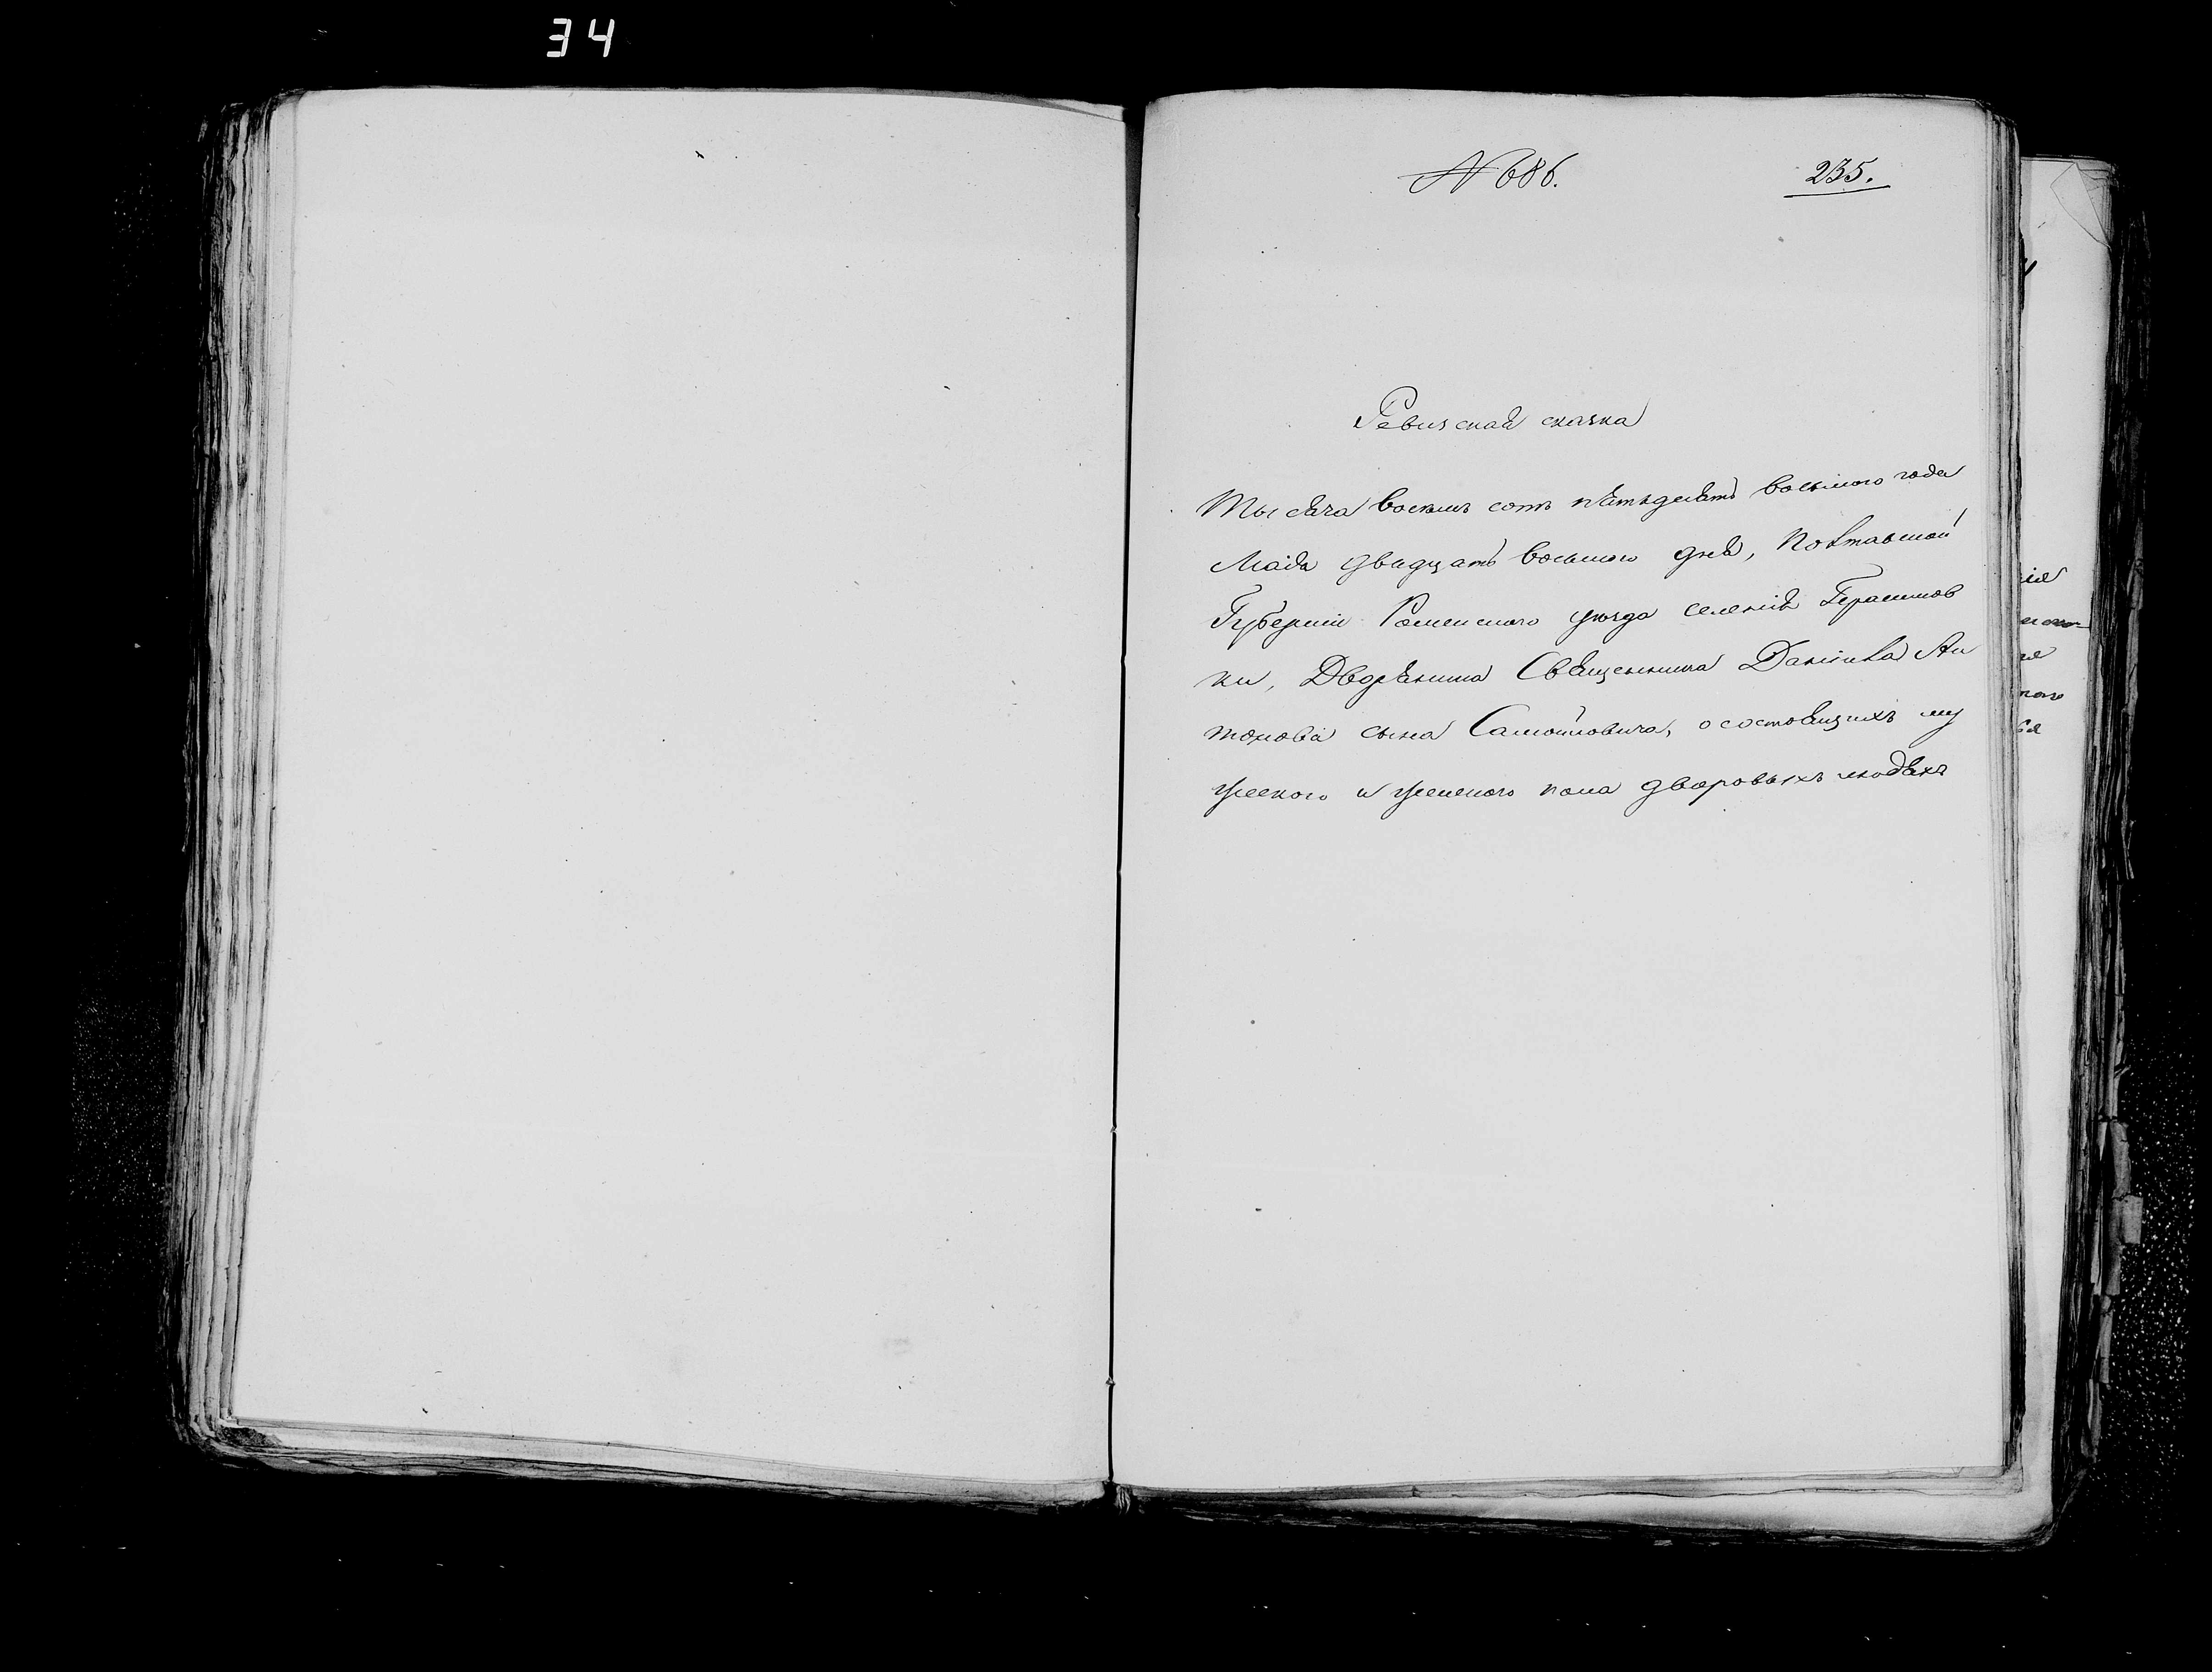 34
N 686. 235.
Ревизская сказка
Тысяча восемь сотъ пятьдесятъ восьмого года
Маія двадцать восьмого дня, Полтавской
Губерніи Роменского уезда селенія Герасимов
ки, Дворянина Священника Даніила Ан
тонова сына Самойловича, о состоящихъ му
жеского и женского пола дворовыхъ людяхъ